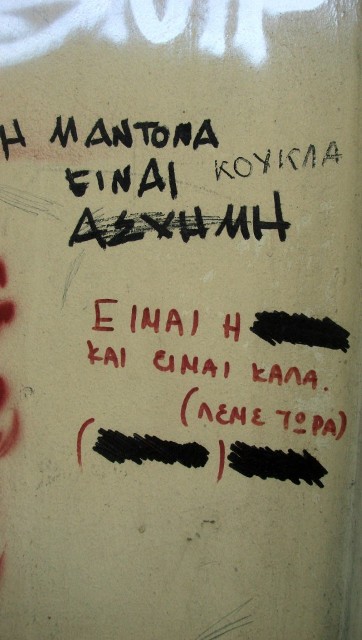 Η ΜΑΝΤΟΝΑ
ΕΙΝΑΙ ΚΟΥΚΛΑ
ΑΣΧΗΜΗ
ΕΙΝΑΙ Η
ΚΑΙ ΕΙΝΑΙ ΚΑΛΑ.
(ΛΕΜΕ ΤΩΡΑ)
( )